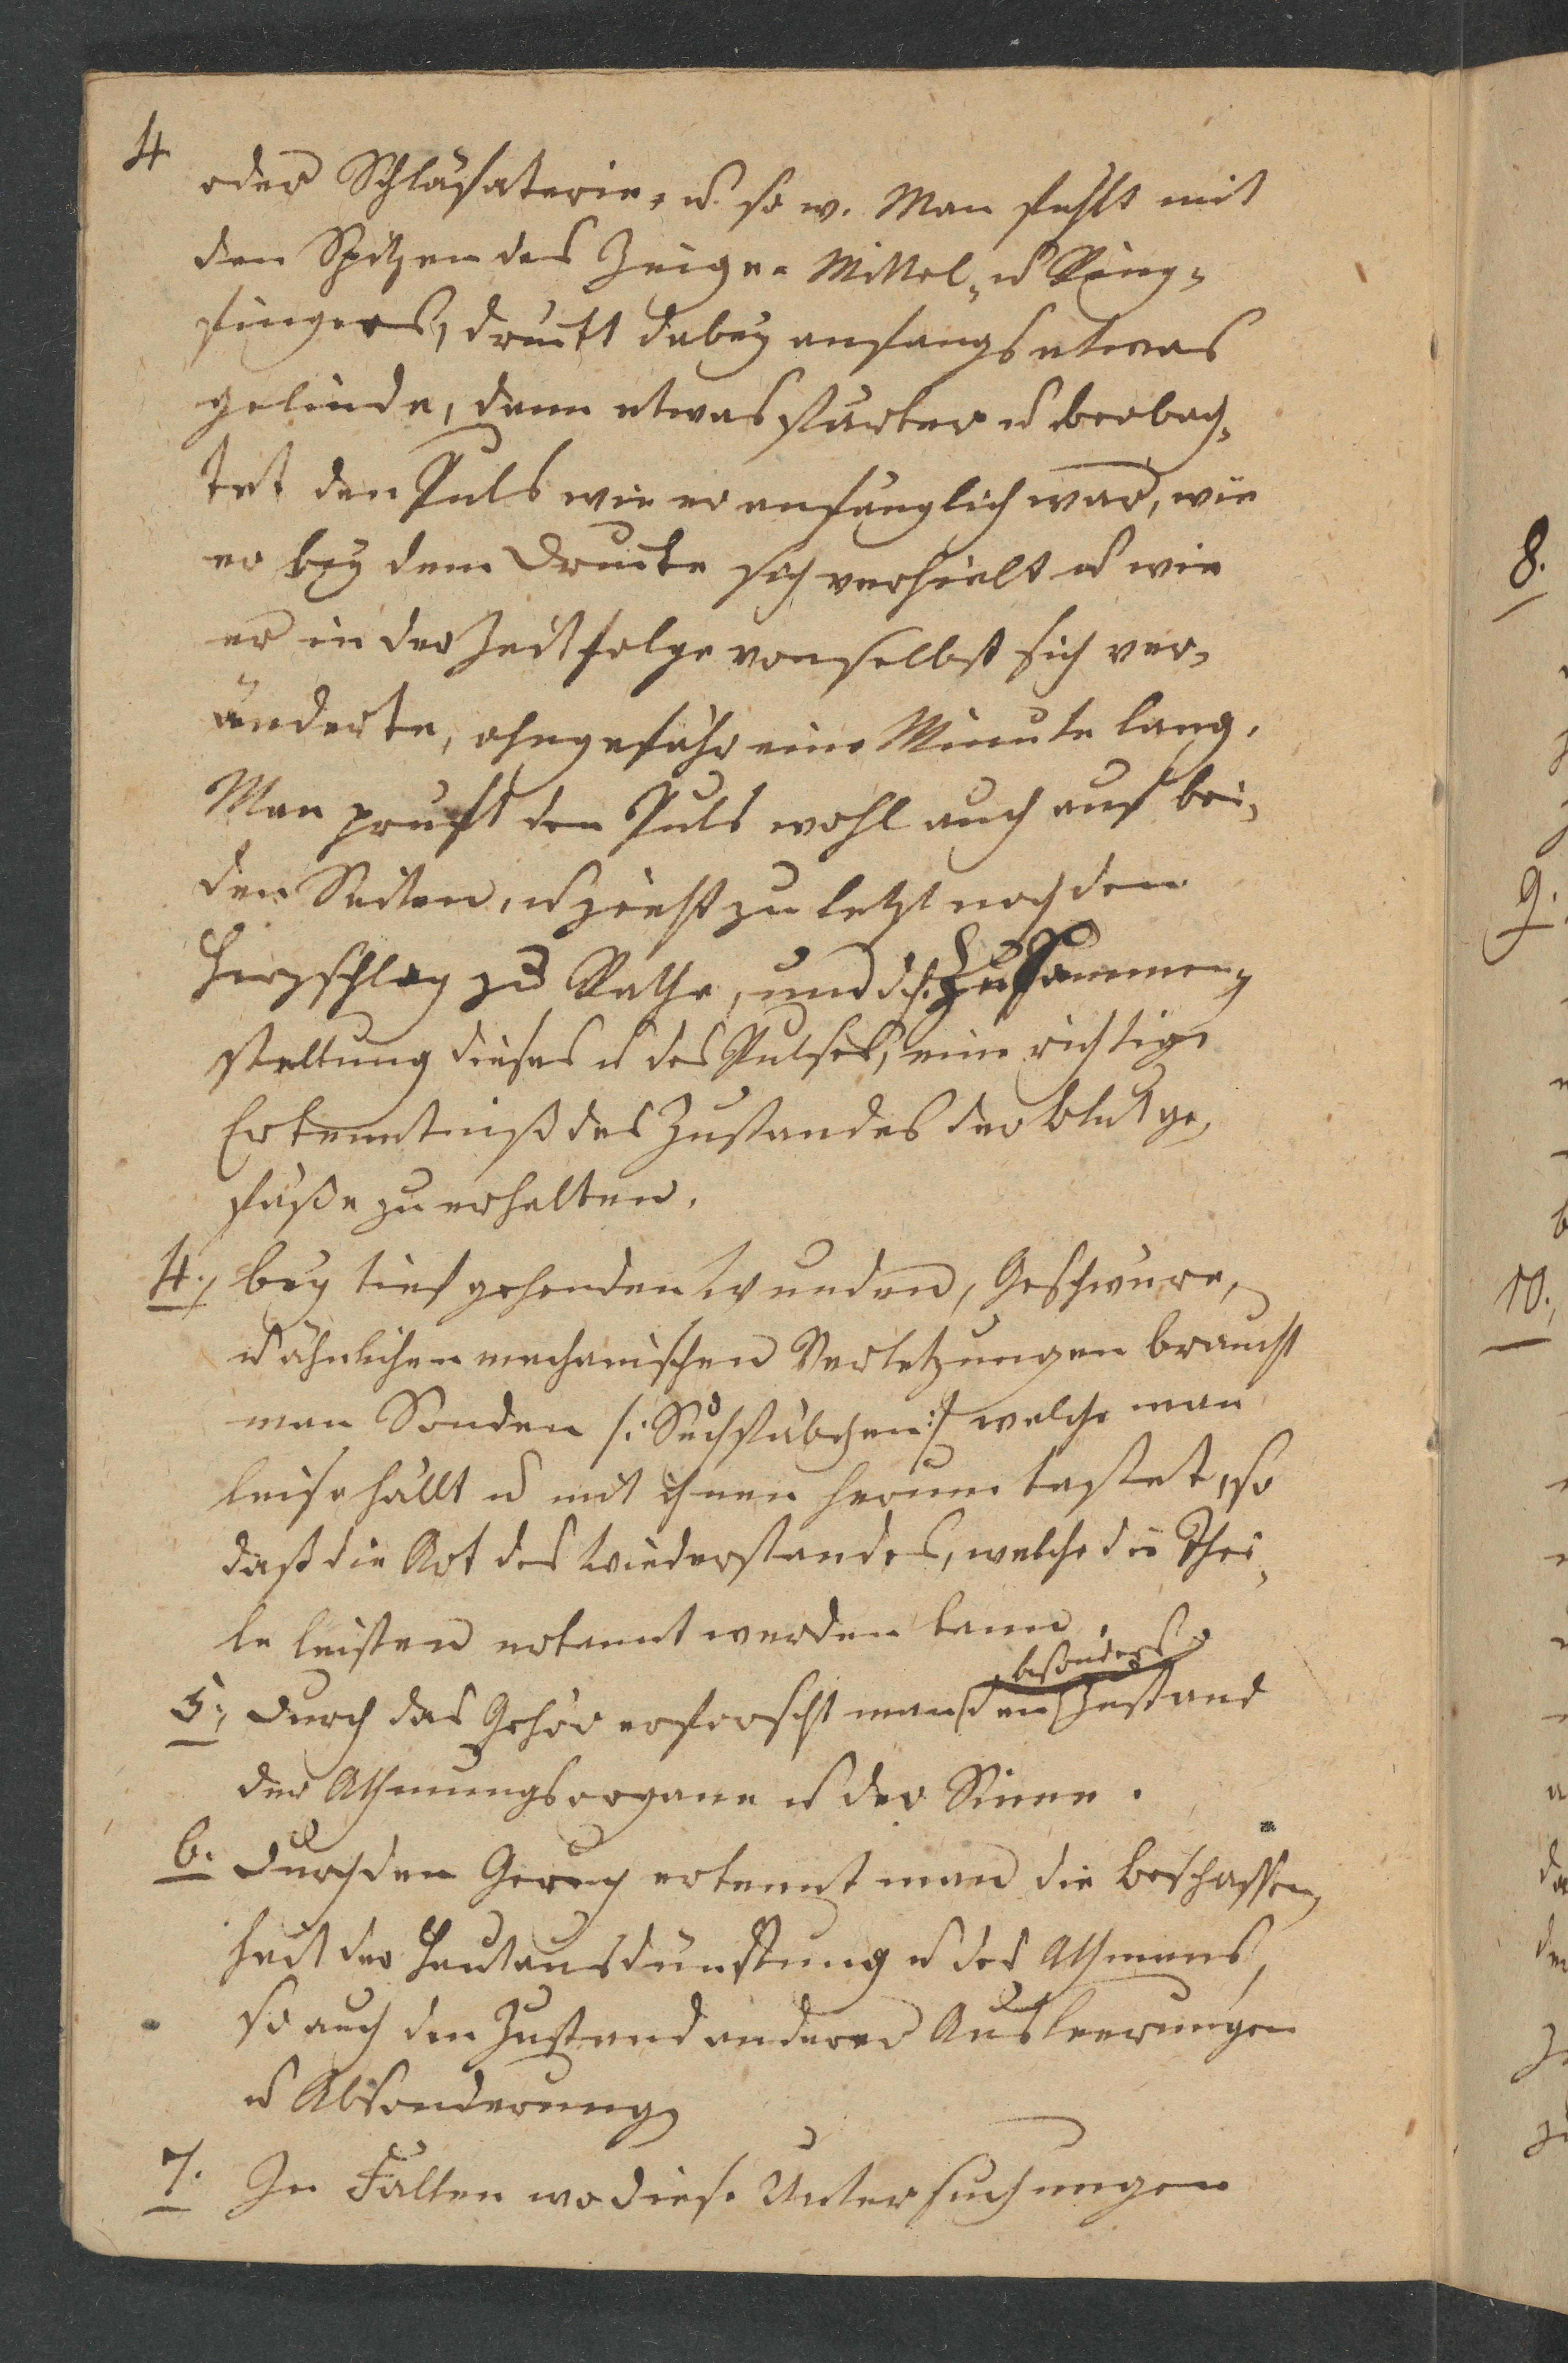 4
oder Schläfaterie, u. so w. Man fühlt mit
den Spitzen des Zeige- Mittel- u Ring-
fingers, druckt dabey anfangs etwas
gelinde, dann etwas stärker u beobach-
tet den Puls wie er anfänglich war, wie
er bey dem Drucke sich verhielt u wie
er in der Zeitfolge von selbst sich ver-
änderte, ohngefähr eine Minute lang.
Man prüft den Puls wohl auch auf bei-
den Seiten, u zieht zu letzt noch den
Herzschlag zu Rathe, und d. Zusammen-
stellung dieses u des Pulses, eine richtige
Erkenntniß des Zustandes der Blutge-
fäße zu erhalten.
4., bey tief gehenden Wunden, Geschwüre,
u ähnlichen mechanischen Verletzungen braucht
man Sonden /: Suchstäbchen :/ welche man
leise hällt u mit ihnen herum tastet, so
daß die Art des Wiederstandes, welche die Thei-
le leisten erkannt werden kann.
besonders
5., Durch das Gehör erforscht man den Zustand
der Athmungsorgane u der Stimme.
6. Durch den Geruch erkennt man die Beschaffen-
heit der Hautausdünstung u des Athmens,
so auch den Zustand anderer Ausleerungen
u Absonderung
7. In Fällen wo diese Untersuchungen
8.
9.
10.,